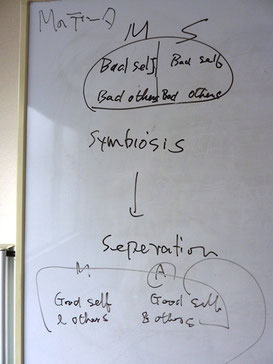 M S
Bad self Bad self
Bad others Bad others
Symbiosis
Seperation
M A
Good self Good self
& others & others